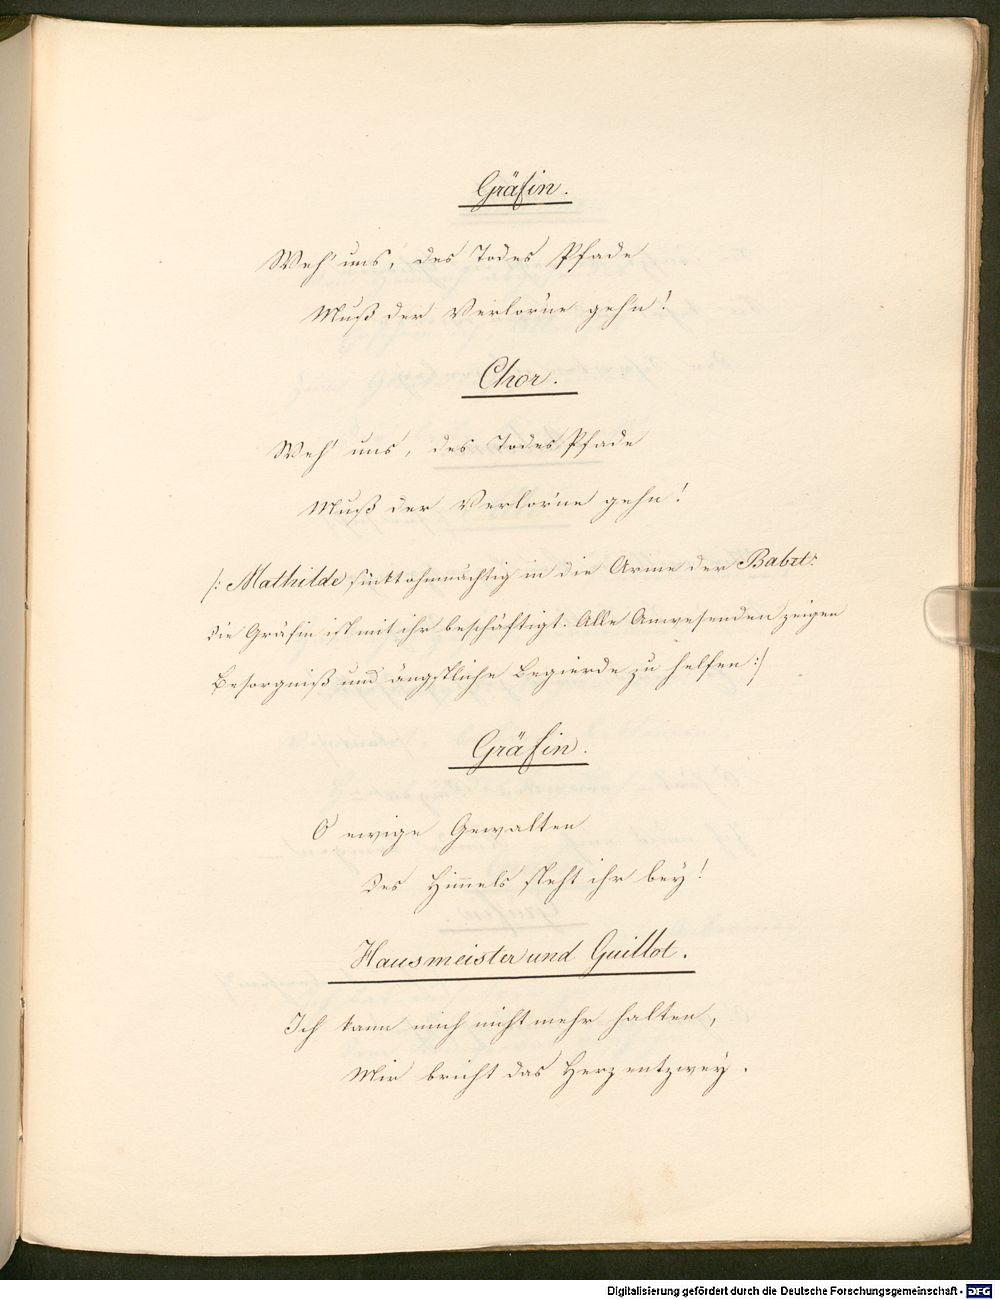 Gräfin.
Weh' uns, des Todes Pfade
Muß der Verlor'ne gehn!
Chor.
Weh' uns, des Todes Pfade
Muß der Verlor'ne gehn!
/: Mathilde sinkt ohnmächtig in die Arme der Babet:
die Gräfin ist mit ihr beschäftigt. Alle Anwesenden zeigen
Besorgniß und ängstliche Begierde zu helfen :/
Gräfin.
O ewige Gewalten
Des Himmels steht ihr bey!
Hausmeister und Guillot.
Ich kann mich nicht mehr halten,
Mir bricht das Herz entzwey.
Digitalisierung gefördert durch die Deutsche Forschungsgemeinschaft - DFG